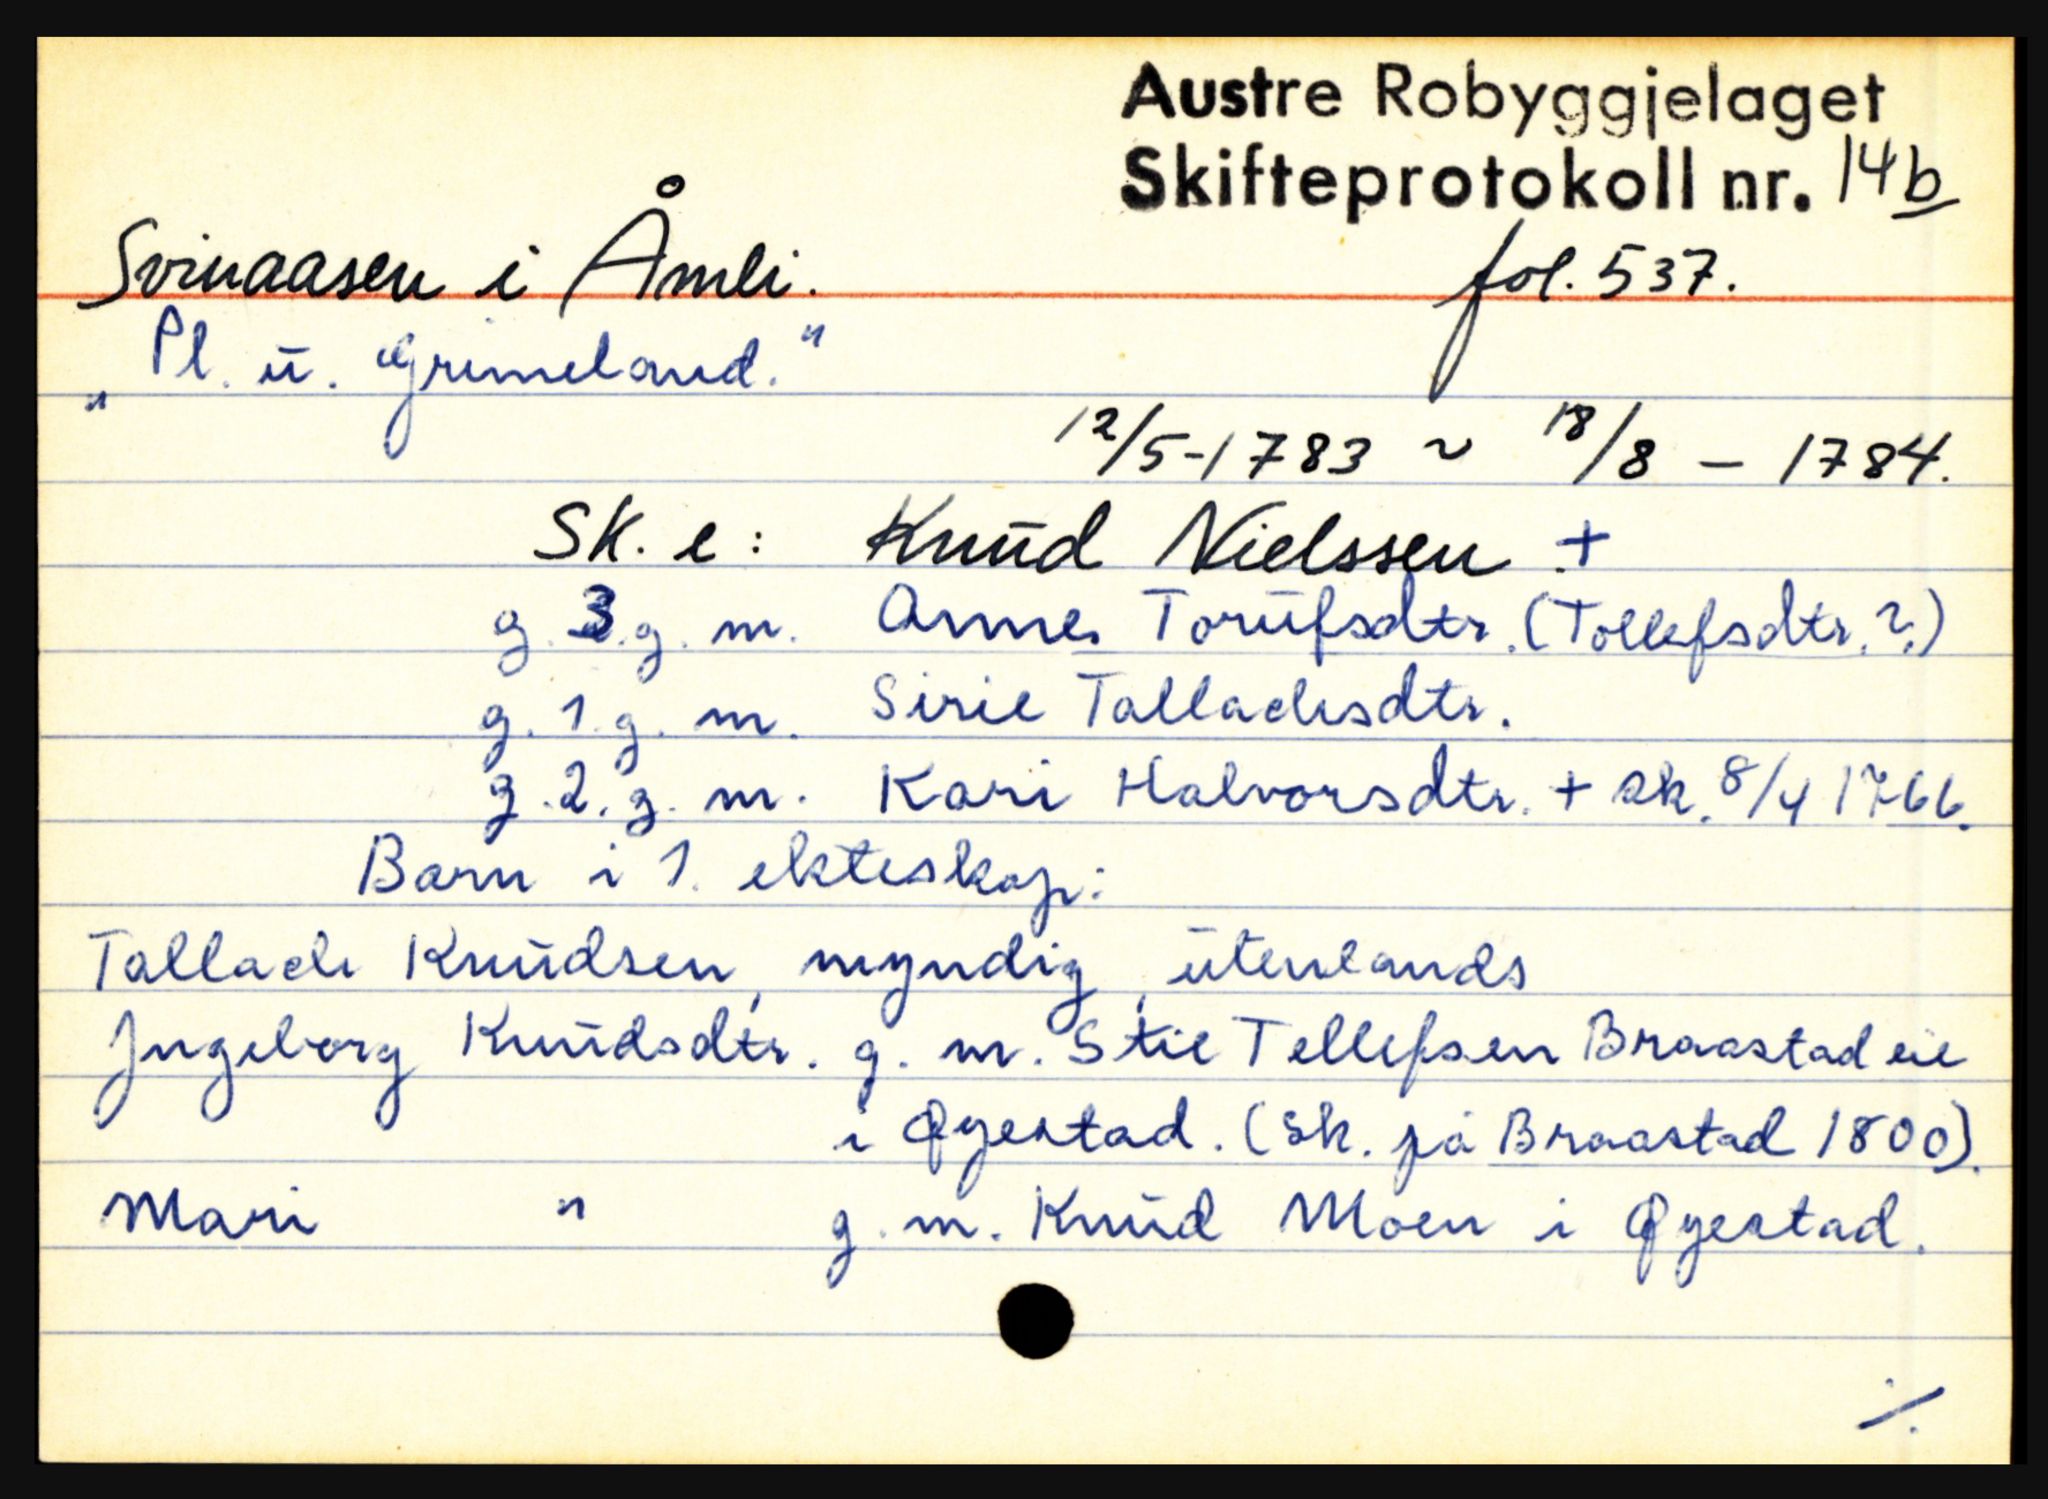 Austre Robyggjelaget
Skifteprotokoll nr. 14b
Svinaasen i Åmli. fol. 537.
"Pl. u. Grimeland."
12/5-1783 ~ 18/8 - 1784.
Sk. e: Knud Nielssen +
g. 3. g. m. Anne Torufsdtr. (Tollefsdtr.?)
g. 1. g. m. Sirie Talladsdtr.
g. 2. g. m. Kari Halvorsdtr. + sk. 8/4 1766.
Barn i 1. ekteskap:
Tallach Knudsen, myndig, utenlands
Ingeborg Knudsdtr. g. m. Stie Tellefsen Braastad eie
i Øyestad. (Sk. på Braastad 1800).
Mari " g. m. Knud Moen i Øyestad.
./.